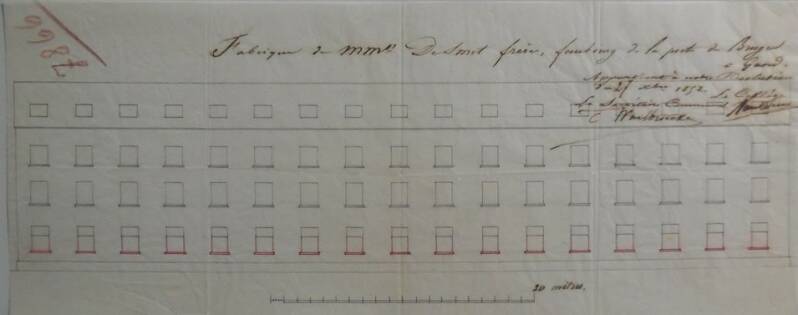 7866
Fabrique de MM.rs De Smet frères, faubourg de la porte de Bruges
à Gand.
Approuvé à notre
du 27 xbre 1852.
Le Secrétaire Le Collège
20 mètres.